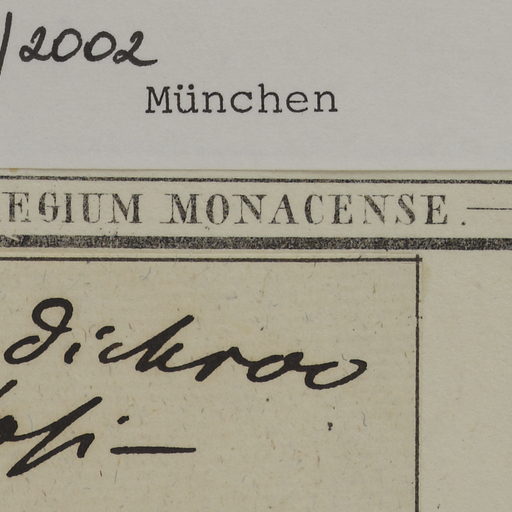 /2002
München
EGIUM MONACENSE.
dichroo